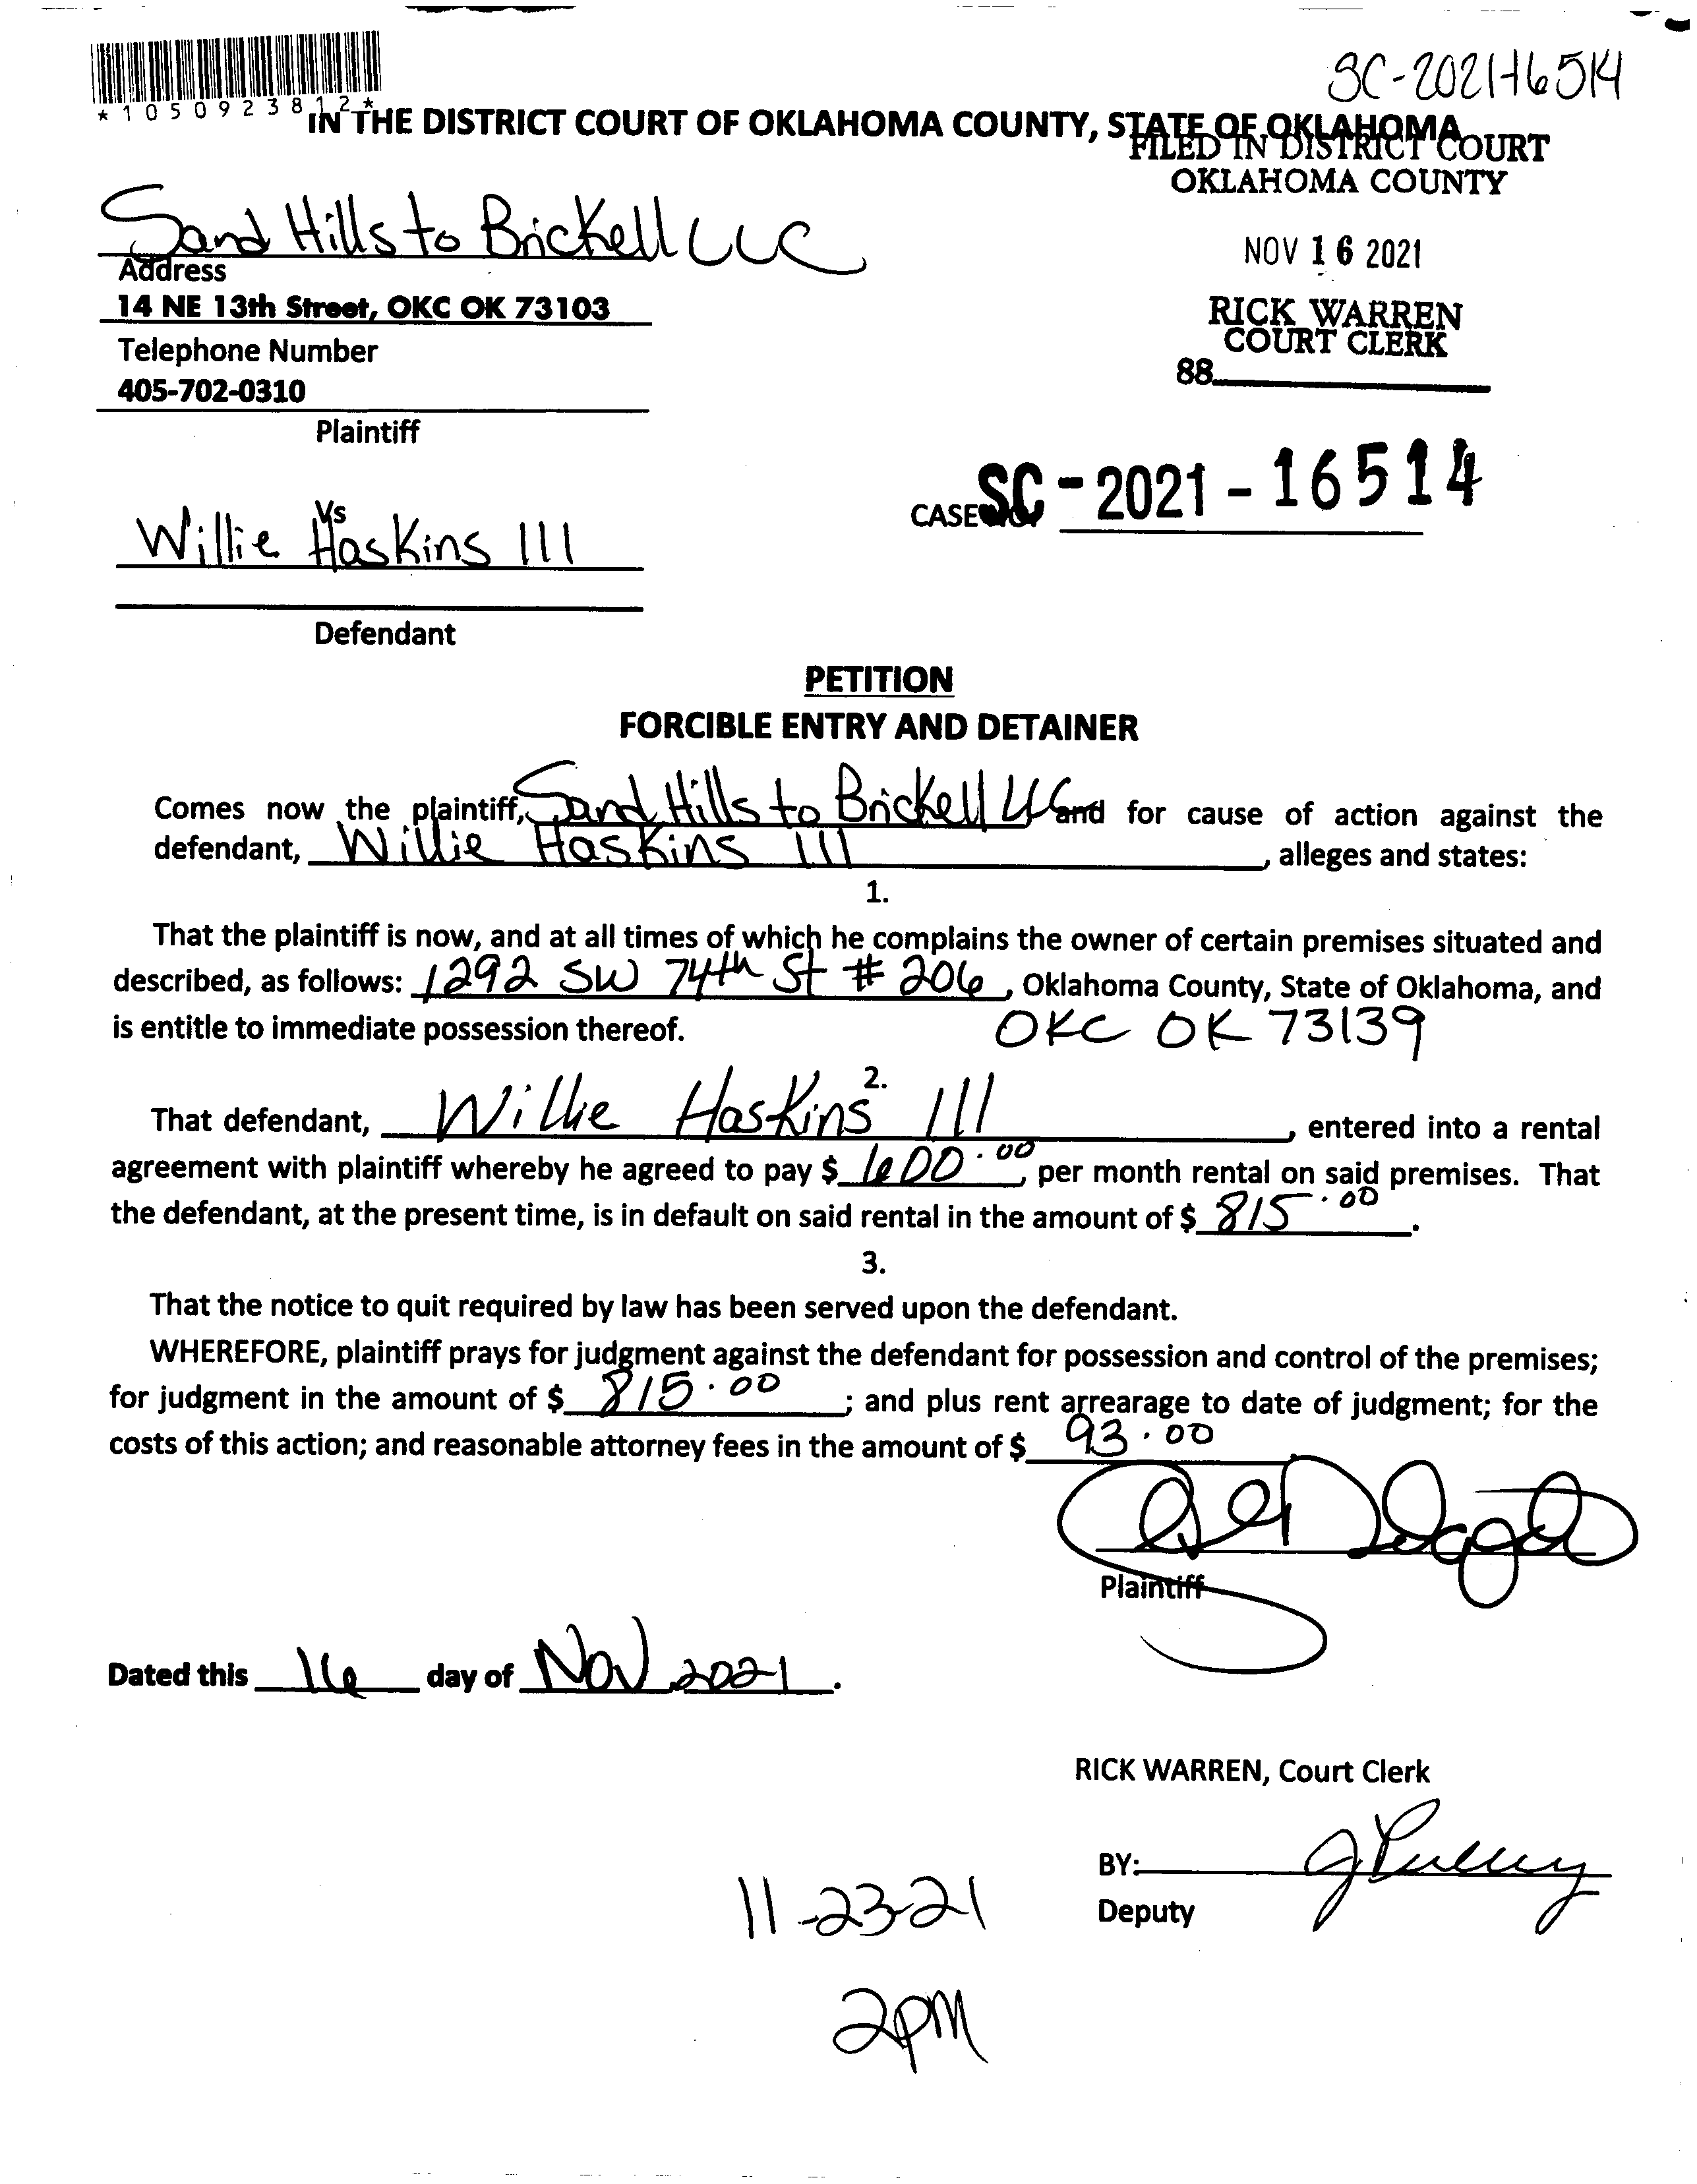 SC-2021-16514
*1050923812*
IN THE DISTRICT COURT OF OKLAHOMA COUNTY, STATE OF OKLAHOMA
FILED IN DISTRICT COURT
OKLAHOMA COUNTY
Sand Hills to Brickell LLC
NOV 16 2021
Address
14 NE 13th Street, OKC OK 73103
RICK WARREN
COURT CLERK
Telephone Number
88
405-702-0310
Plaintiff
CASE NO. SC-2021-16514
Vs
Willie Haskins III
Defendant
PETITION
FORCIBLE ENTRY AND DETAINER
Comes now the plaintiff, Sand Hills to Brickell LLC and for cause of action against the
defendant, Willie Haskins III, alleges and states:
1.
That the plaintiff is now, and at all times of which he complains the owner of certain premises situated and
described, as follows: 1292 SW 74th St # 206, Oklahoma County, State of Oklahoma, and
is entitle to immediate possession thereof. OKC OK 73139
2.
That defendant, Willie Haskins III, entered into a rental
agreement with plaintiff whereby he agreed to pay $ 600.00, per month rental on said premises. That
the defendant, at the present time, is in default on said rental in the amount of $ 815.00.
3.
That the notice to quit required by law has been served upon the defendant.
WHEREFORE, plaintiff prays for judgment against the defendant for possession and control of the premises;
for judgment in the amount of $ 815.00; and plus rent arrearage to date of judgment; for the
costs of this action; and reasonable attorney fees in the amount of $ 93.00
Plaintiff
Dated this 16 day of Nov 2021.
RICK WARREN, Court Clerk
BY:
Deputy
11-23-21
2pm